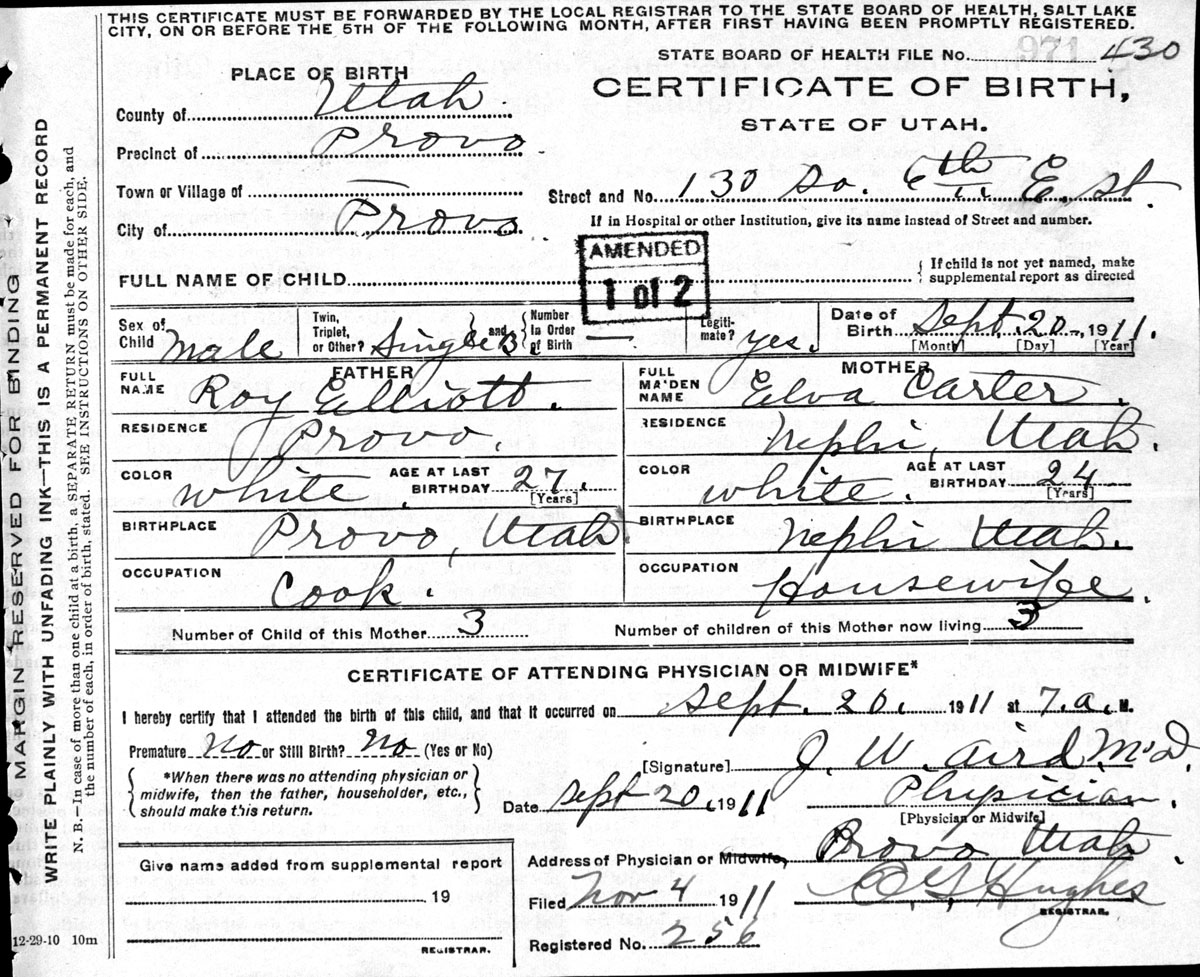 THIS CERTIFICATE MUST BE FORWARDED BY THE LOCAL REGISTRAR TO THE STATE BOARD OF HEALTH, SALT LAKE
CITY, ON OR BEFORE THE 5TH OF THE FOLLOWING MONTH, AFTER FIRST HAVING BEEN PROMPTLY REGISTERED.
STATE BOARD OF HEALTH FILE No. 971 430
PLACE OF BIRTH
CERTIFICATE OF BIRTH,
STATE OF UTAH.
County of Utah
Precinct of Provo
Town or Village of —
City of Provo
Street and No. 130 So. 6th E. st.
If in Hospital or other Institution, give its name instead of Street and number.
AMENDED
1 of 2
FULL NAME OF CHILD
{ If child is not yet named, make
supplemental report as directed
Sex of Child Male
Twin, Triplet, or Other? Single } and { Number In Order of Birth —
Legiti-mate? yes.
Date of Birth Sept. 20 - 1911.
[Month] [Day] [Year]
FATHER
FULL NAME Roy Elliott.
RESIDENCE Provo.
COLOR white. AGE AT LAST BIRTHDAY 27.
[Years]
BIRTHPLACE Provo, Utah.
OCCUPATION Cook.
MOTHER
FULL MAIDEN NAME Elva Carter.
RESIDENCE Nephi, Utah.
COLOR white. AGE AT LAST BIRTHDAY 24
[Years]
BIRTHPLACE Nephi Utah.
OCCUPATION Housewife.
Number of Child of this Mother 3
Number of children of this Mother now living 3
CERTIFICATE OF ATTENDING PHYSICIAN OR MIDWIFE*
I hereby certify that I attended the birth of this child, and that it occurred on Sept. 20, 1911 at 7. a. M.
Premature No or Still Birth? No (Yes or No)
*When there was no attending physician or
midwife, then the father, householder, etc.,
should make this return.
[Signature] J. W. Aird M.D.
Date Sept 20, 1911 Physician.
[Physician or Midwife]
Address of Physician or Midwife, Provo Utah.
Filed Nov 4 1911 Hughes
REGISTRAR.
Registered No. 256
Give name added from supplemental report
19
REGISTRAR.
12-29-10 10m
MARGIN RESERVED FOR BINDING
WRITE PLAINLY WITH UNFADING INK—THIS IS A PERMANENT RECORD
N. B.—In case of more than one child at a birth, a SEPARATE RETURN must be made for each, and
the number of each, in order of birth, stated. SEE INSTRUCTIONS ON OTHER SIDE.